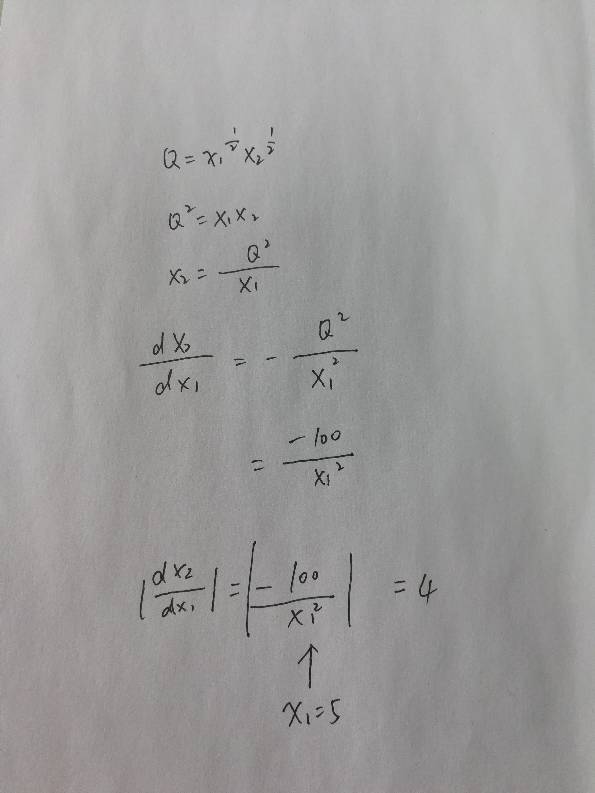 Q = x₁^{1/2} x₂^{1/2}
Q² = x₁x₂
x₂ = Q²/x₁
dx₂/dx₁ = - Q²/x₁²
= -100/x₁²
|dx₂/dx₁| = |-100/x₁²| = 4
↑
x₁=5